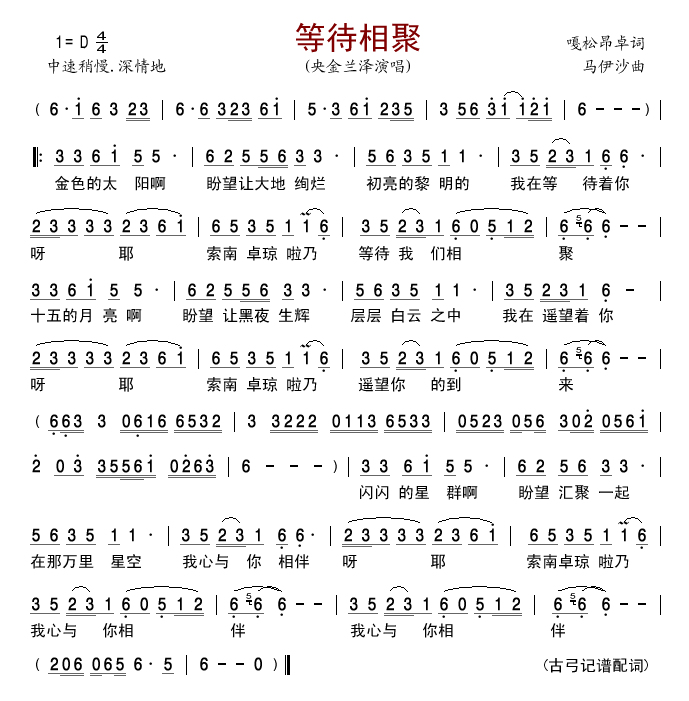 等待相聚
1= D 4/4
嘎松昂卓词
中速稍慢.深情地
(央金兰泽演唱)
马伊沙曲
( 6·1 6 3 23 | 6·6 3235 61 | 5·3 61 235 | 3 56 31 121 | 6 - - - ) |
|: 3 3 6 1 5 5 · | 6 2 5 5 5 6 3 3 · | 5 6 3 5 1 1 · | 3 5 2 3 1 6 6 · |
金色的太 阳啊 盼望让大地 绚烂 初亮的黎 明的 我在等 待着你
2 3 3 3 3 2 3 6 1 | 6 5 3 5 1 1 6 | 3 5 2 3 1 6 0 5 1 2 | 6 5 6 6 - - |
呀 耶 索南 卓琼 啦乃 等待 我 们相 聚
3 3 6 1 5 5 · | 6 2 5 5 6 3 3 · | 5 6 3 5 1 1 · | 3 5 2 3 1 6 - |
十五的月 亮 啊 盼望 让黑夜 生辉 层层 白云 之中 我在 遥望着 你
2 3 3 3 3 2 3 6 1 | 6 5 3 5 1 1 6 | 3 5 2 3 1 6 0 5 1 2 | 6 5 6 6 - - |
呀 耶 索南 卓琼 啦乃 遥望你 的到 来
( 663 3 0616 6532 | 3 3222 0113 6533 | 0523 056 302 0561 |
2 03 35561 0263 | 6 - - ) | 3 3 6 1 5 5 · | 6 2 5 6 3 3 · |
闪闪 的星 群啊 盼望 汇聚 一起
5 6 3 5 1 1 · | 3 5 2 3 1 6 6 · | 2 3 3 3 3 2 3 6 1 | 6 5 3 5 1 1 6 |
在那万里 星空 我心与 你 相伴 呀 耶 索南卓琼 啦乃
3 5 2 3 1 6 0 5 1 2 | 6 5 6 6 - - | 3 5 2 3 1 6 0 5 1 2 | 6 5 6 6 - - |
我心与 你相 伴 我心与 你相 伴
( 206 065 6·5 | 6 - - 0 ) ||
(古弓记谱配词)